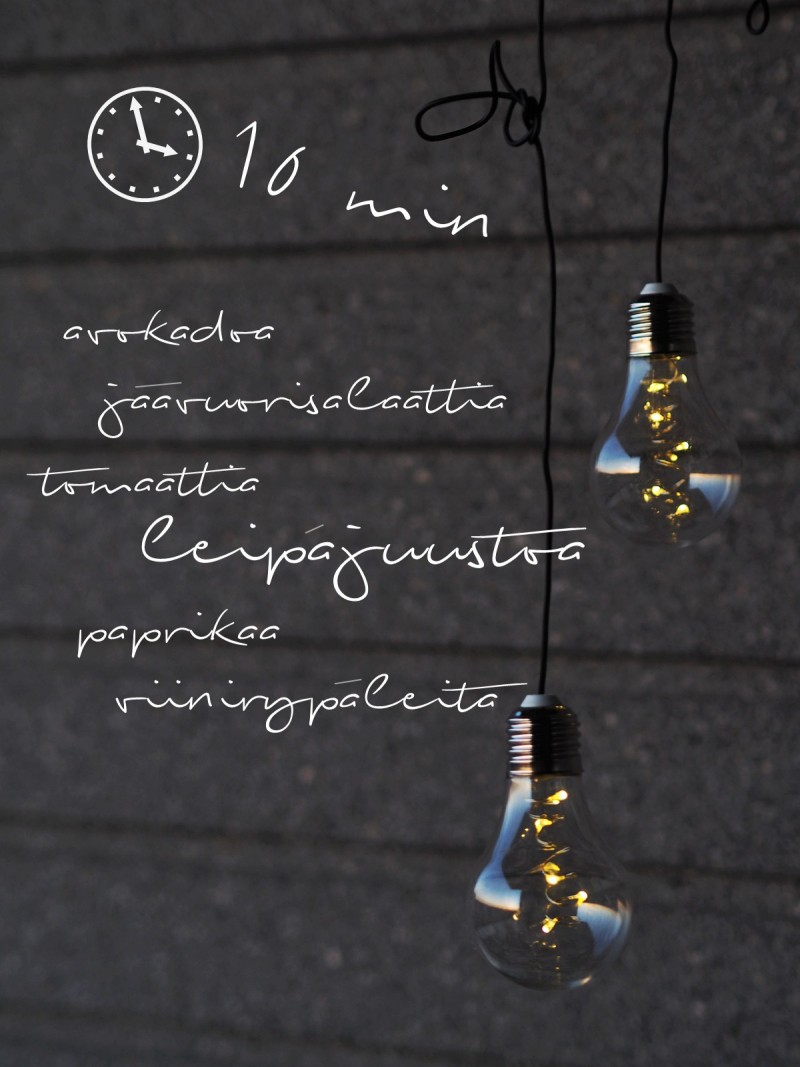 10 min
avokadoa
jäävuorisalaattia
tomaattia
leipäjuustoa
paprikaa
viinirypäleitä